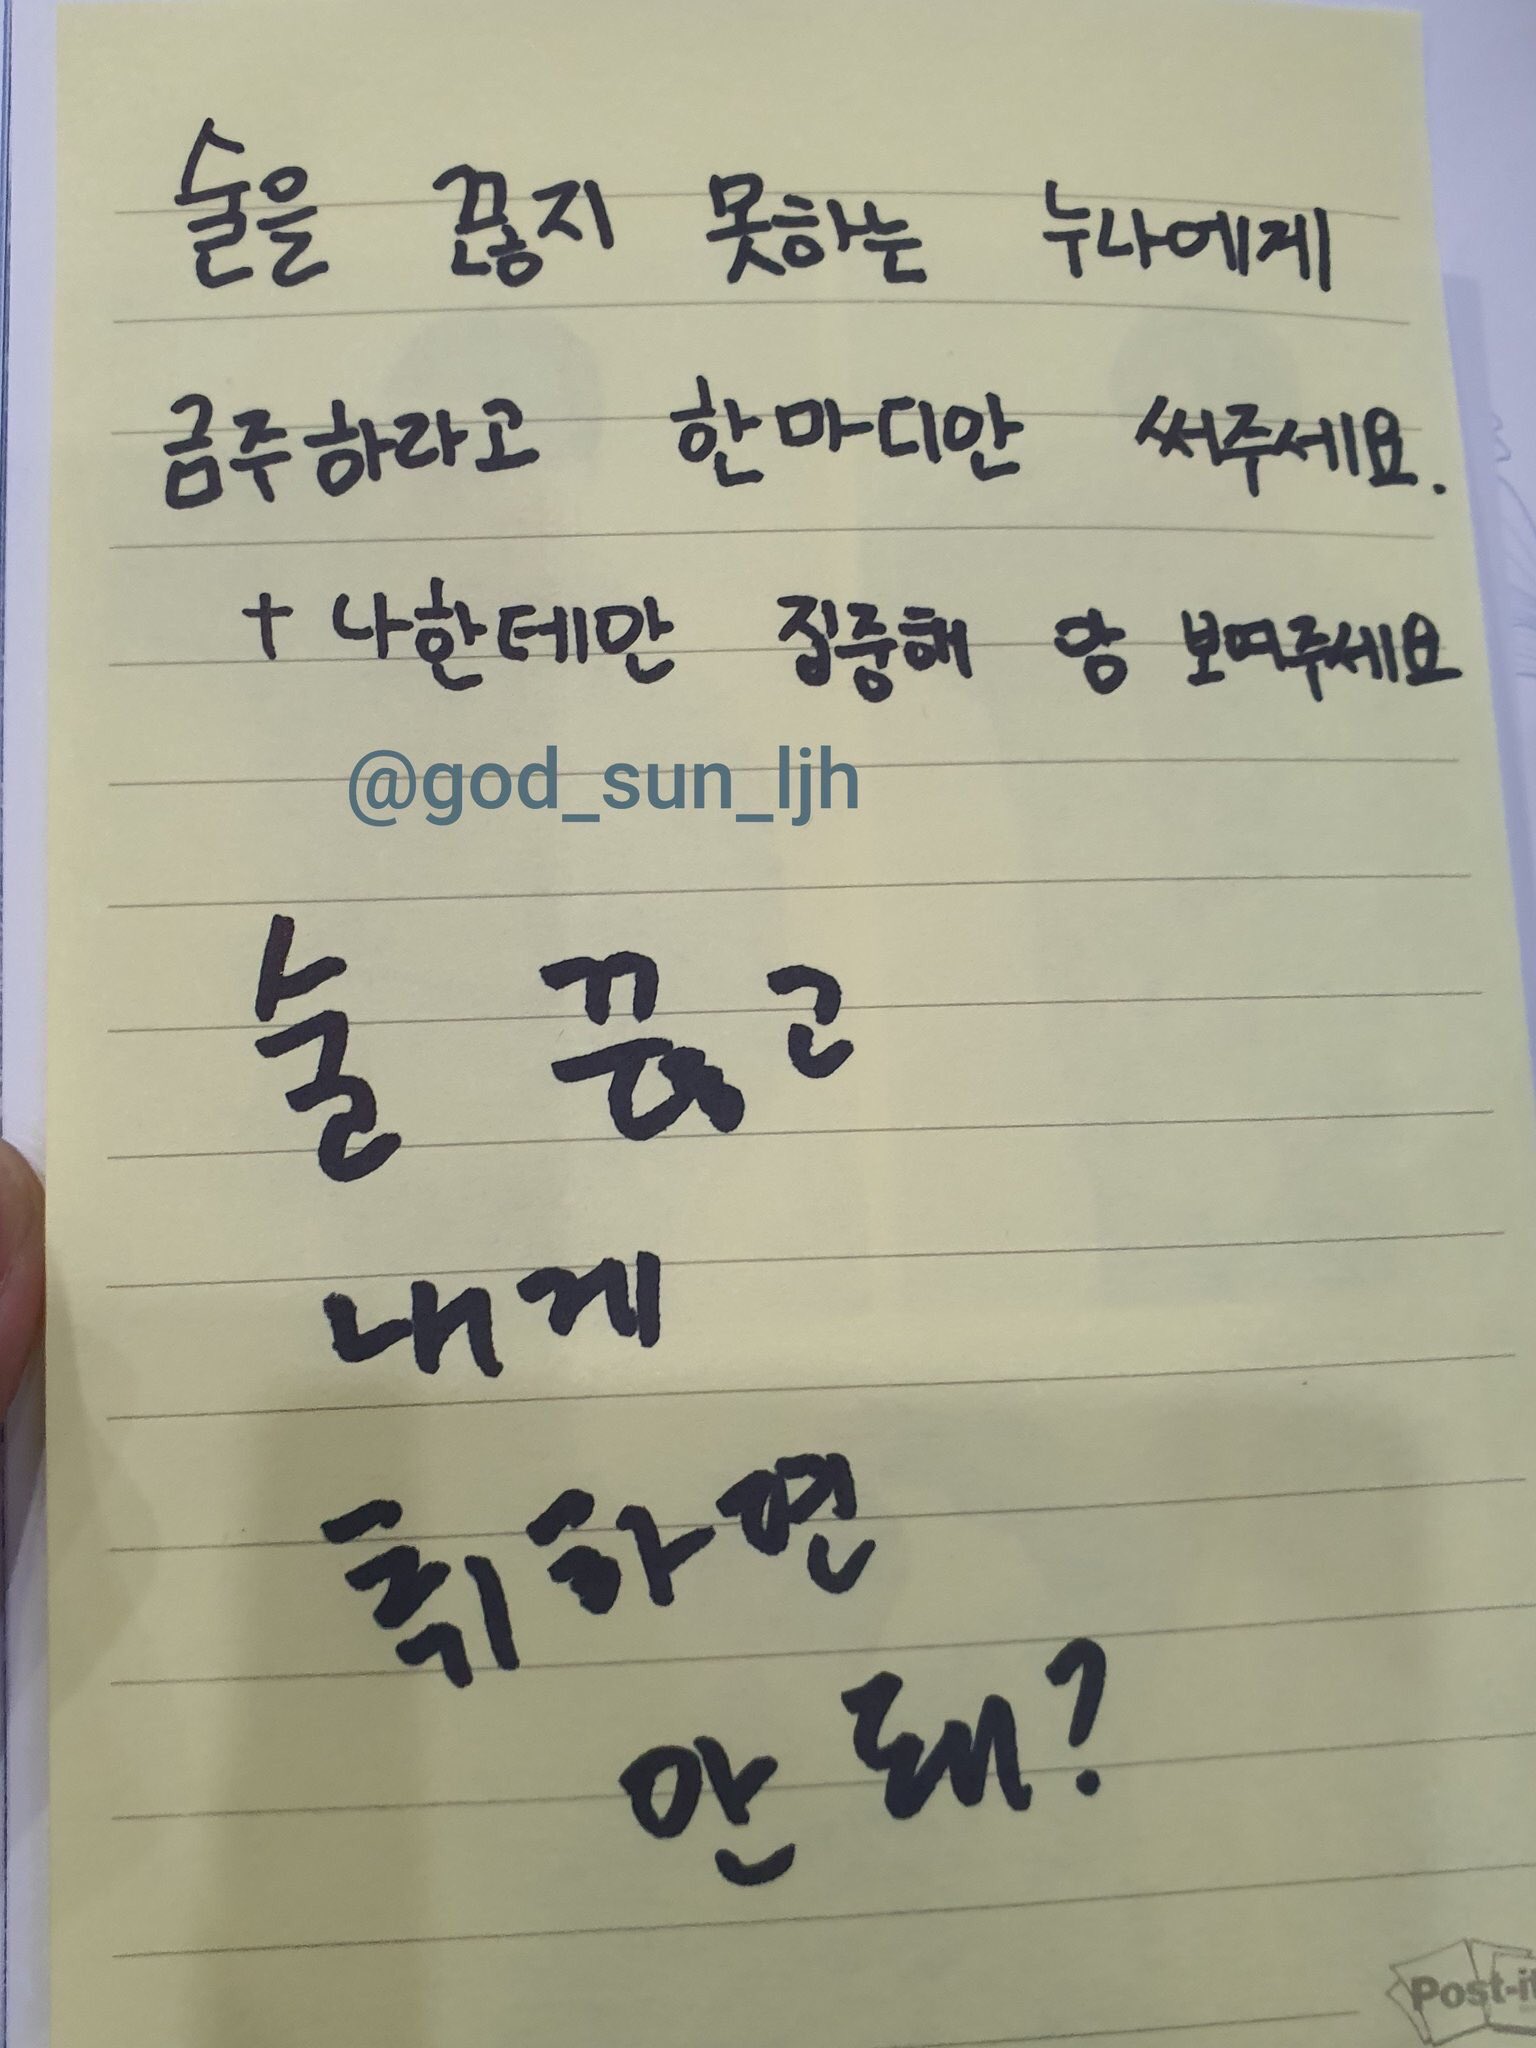 술을 끊지 못하는 누나에게
금주하라고 한마디만 써주세요.
+ 나한테만 집중해 앙 보여주세요
@god_sun_ljh
술 끊고
내게
취하면
안 돼?
Post-it